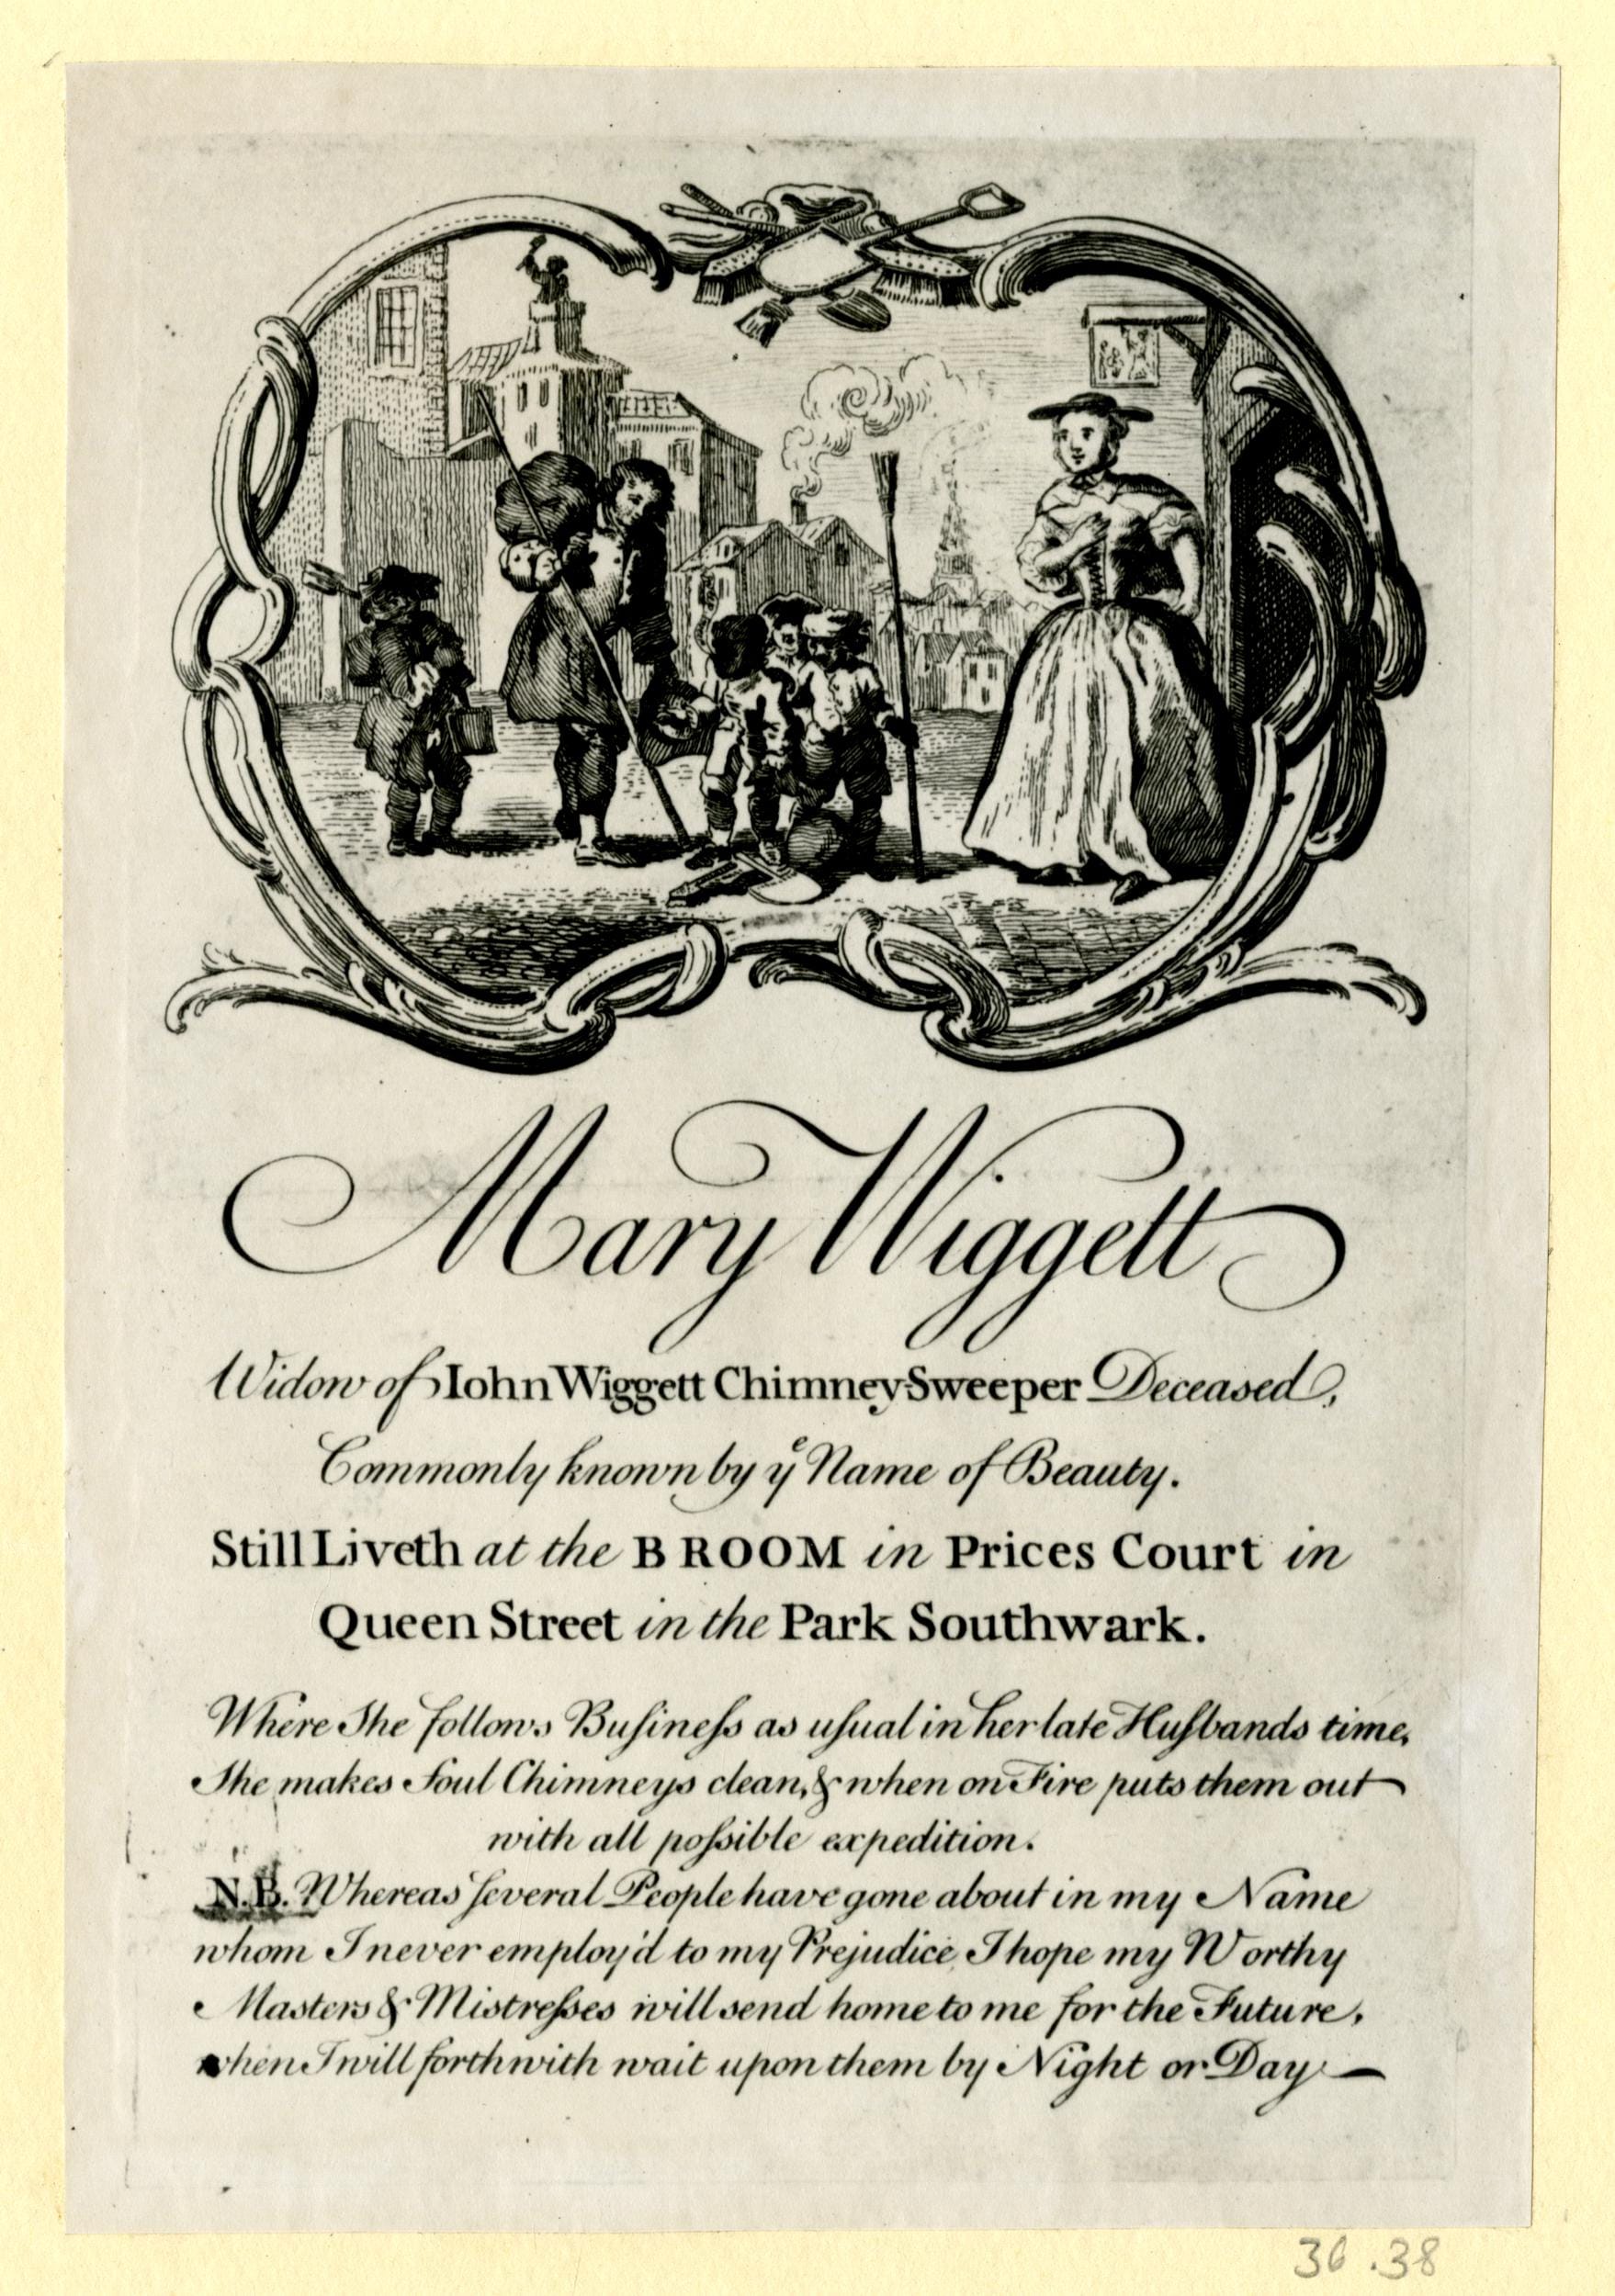 Mary Wiggett
Widow of Iohn Wiggett Chimney Sweeper Deceased,
Commonly known by yͤ Name of Beauty.
Still Liveth at the BROOM in Prices Court in
Queen Street in the Park Southwark.
Where She follows Buſineſs as uſual in her late Huſbands time,
She makes Foul Chimneys clean, & when on Fire puts them out
with all poſsible expedition.
N.B. Whereas ſeveral People have gone about in my Name
whom I never employ'd to my Prejudice, I hope my Worthy
Masters & Mistreſses will send home to me for the Future,
when I will forthwith wait upon them by Night or Day —
36.38